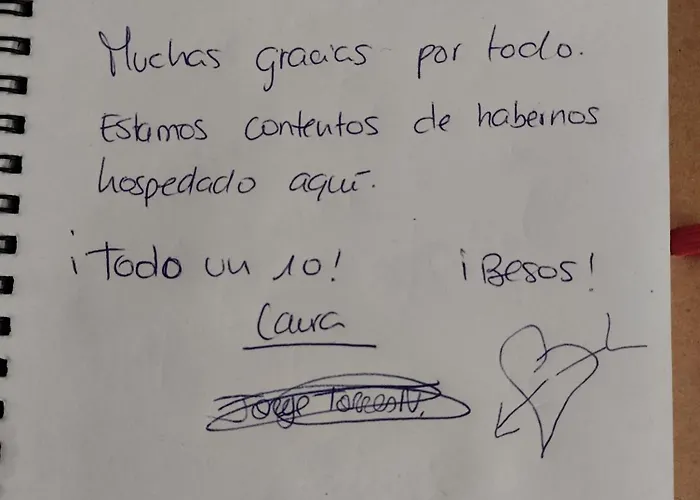 Muchas gracias por todo.
Estamos contentos de habernos
hospedado aquí.
¡Todo un 10! ¡Besos!
Laura
Jorge Torres N.